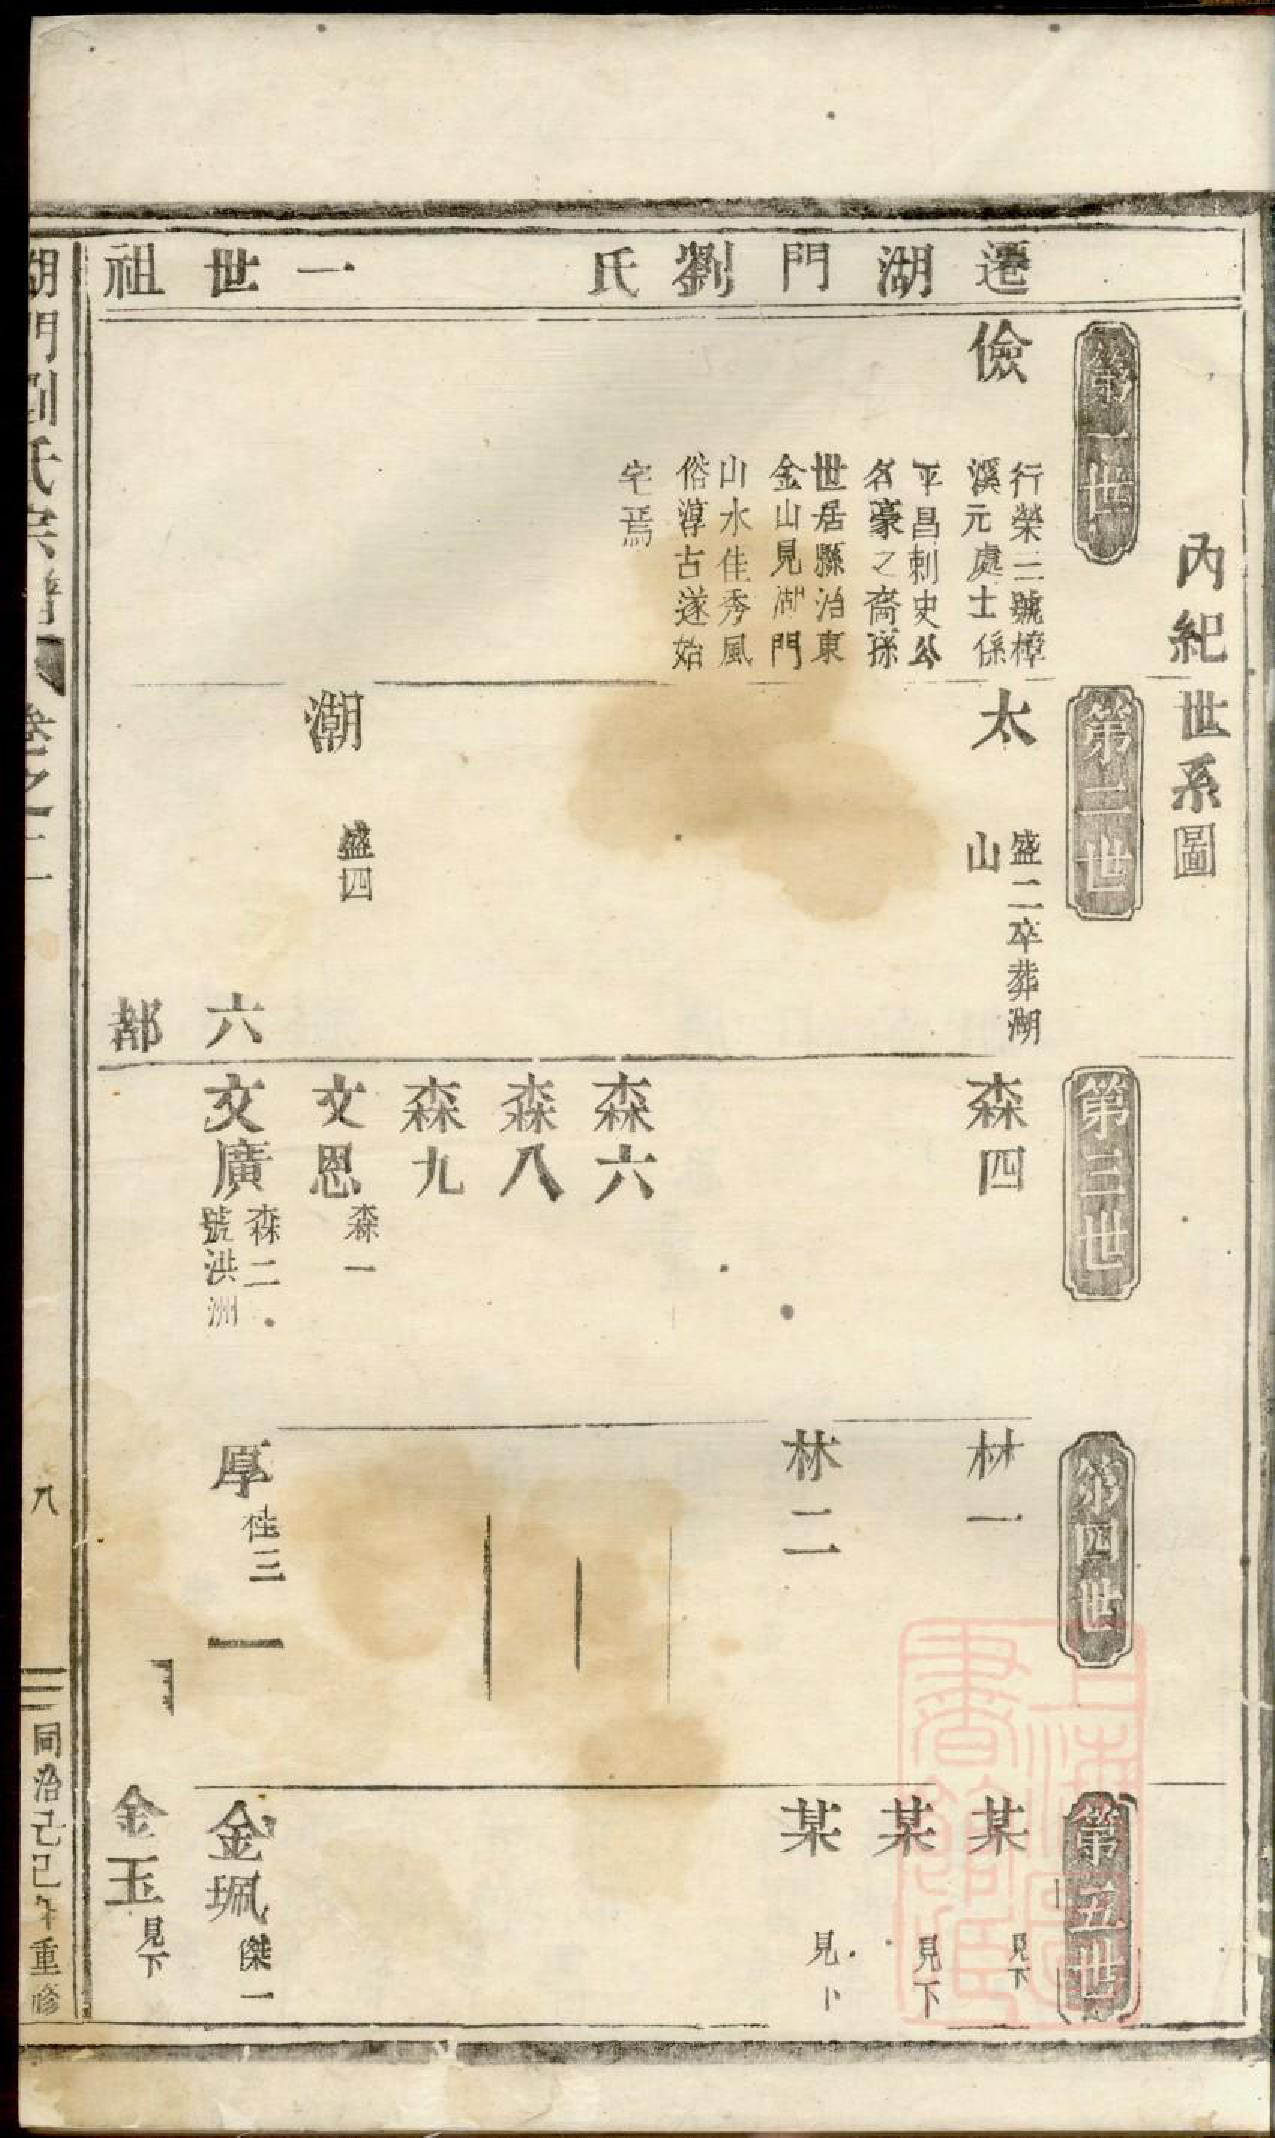 內紀世系圖
遷湖門劉氏一世祖
第一世
儉
行榮三號樟
溪元處士係
平昌刺史公
名豪之裔孫
世居縣治東
金山見湖門
山水佳秀風
俗淳古遂始
宅焉
第二世
太
盛二卒葬湖
山
潮
盛四
六都
第三世
森四
森六
森八
森九
文恩
森一
文廣
森二
號洪洲
第四世
林一
林二
厚
桂三
第五世
某
見下
某
見下
某
見下
金珮
傑一
金玉
見下
湖門劉氏宗譜
卷之二
八
同治己巳年重修
上海圖書館藏